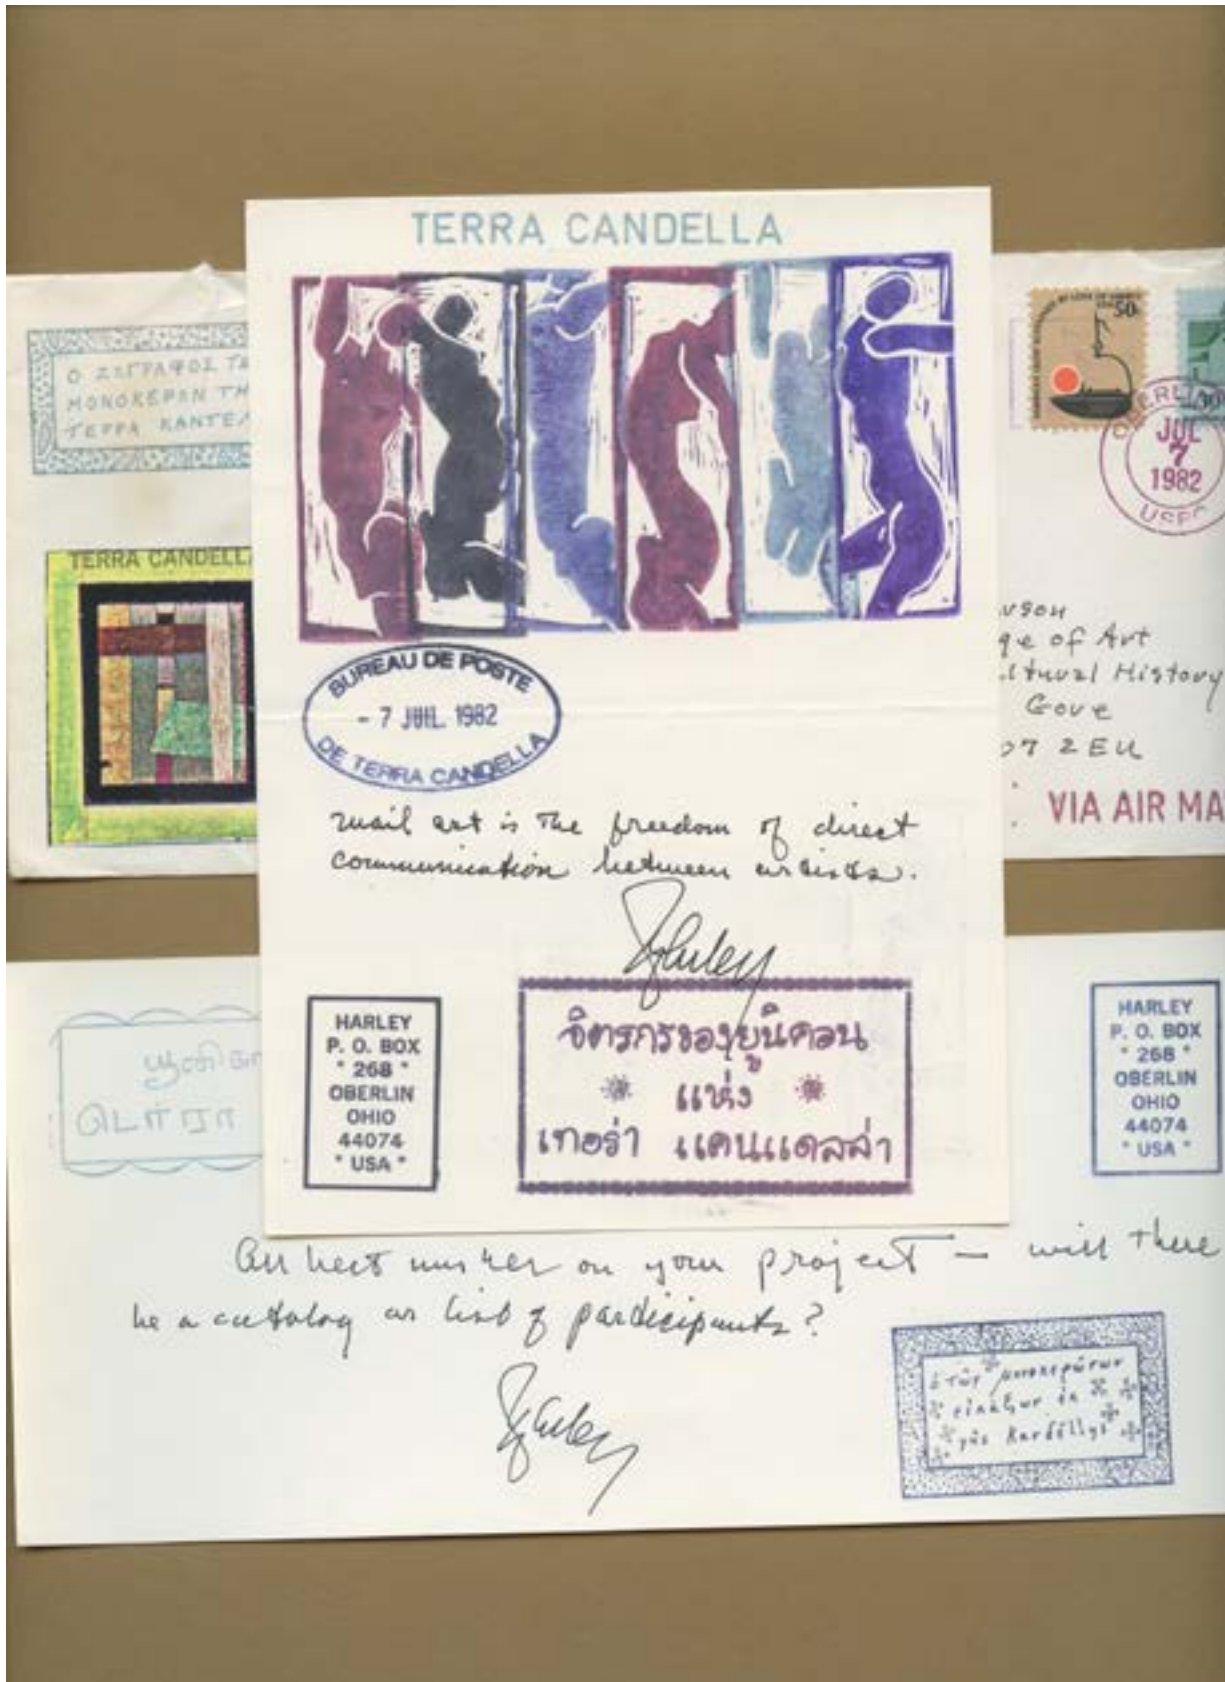 TERRA CANDELLA
Ο ΖΩΓΡΑΦΟΣ
ΜΟΝΟΚΕΡΟΝ ΤΗ
ΤΕΡΡΑ ΚΑΝΤΕΛ
TERRA CANDELL
50c
OBERLIN
JUL
7
1982
USPO
ge of Art
ltural History
Gove
07 2EU
VIA AIR MA
BUREAU DE POSTE
- 7 JUIL. 1982
DE TERRA CANDELLA
mail art is the freedom of direct
communication between artists.
Harley
HARLEY
P. O. BOX
* 268 *
OBERLIN
OHIO
44074
* USA *
จิตรกรของยูนิคอน
แห่ง
เทอร่า แคนแดลล่า
யூனிகா
டெர்ரா
HARLEY
P. O. BOX
* 268 *
OBERLIN
OHIO
44074
* USA *
All best wishes on your project — will there
be a catalog or list of participants?
Harley